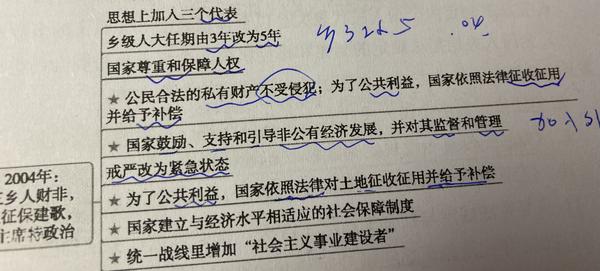 思想上加入三个代表
乡级人大任期由3年改为5年
国家尊重和保障人权
★ 公民合法的私有财产不受侵犯；为了公共利益，国家依照法律征收征用
并给予补偿
★ 国家鼓励、支持和引导非公有经济发展，并对其监督和管理
戒严改为紧急状态
★ 为了公共利益，国家依照法律对土地征收征用并给予补偿
★ 国家建立与经济水平相适应的社会保障制度
★ 统一战线里增加“社会主义事业建设者”
2004年：
乡人财非，
征保建歌，
主席特政治